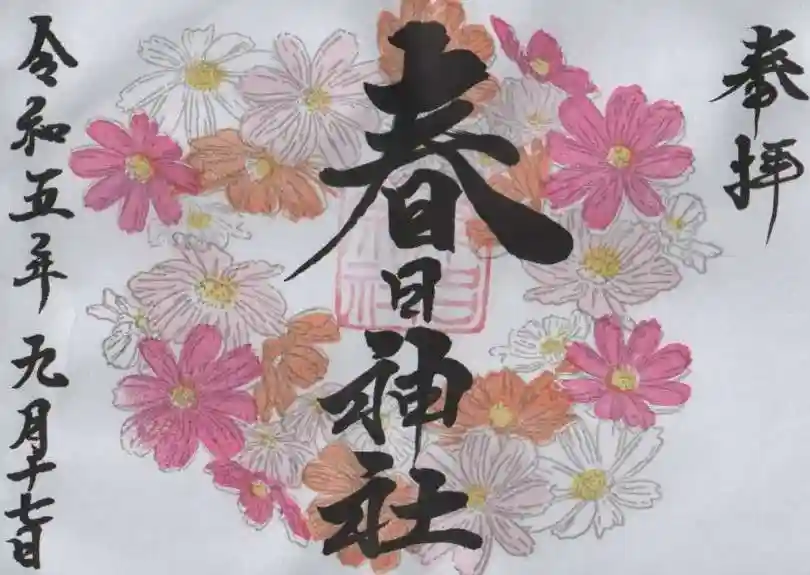 奉拝
春日神社
令和五年九月十七日